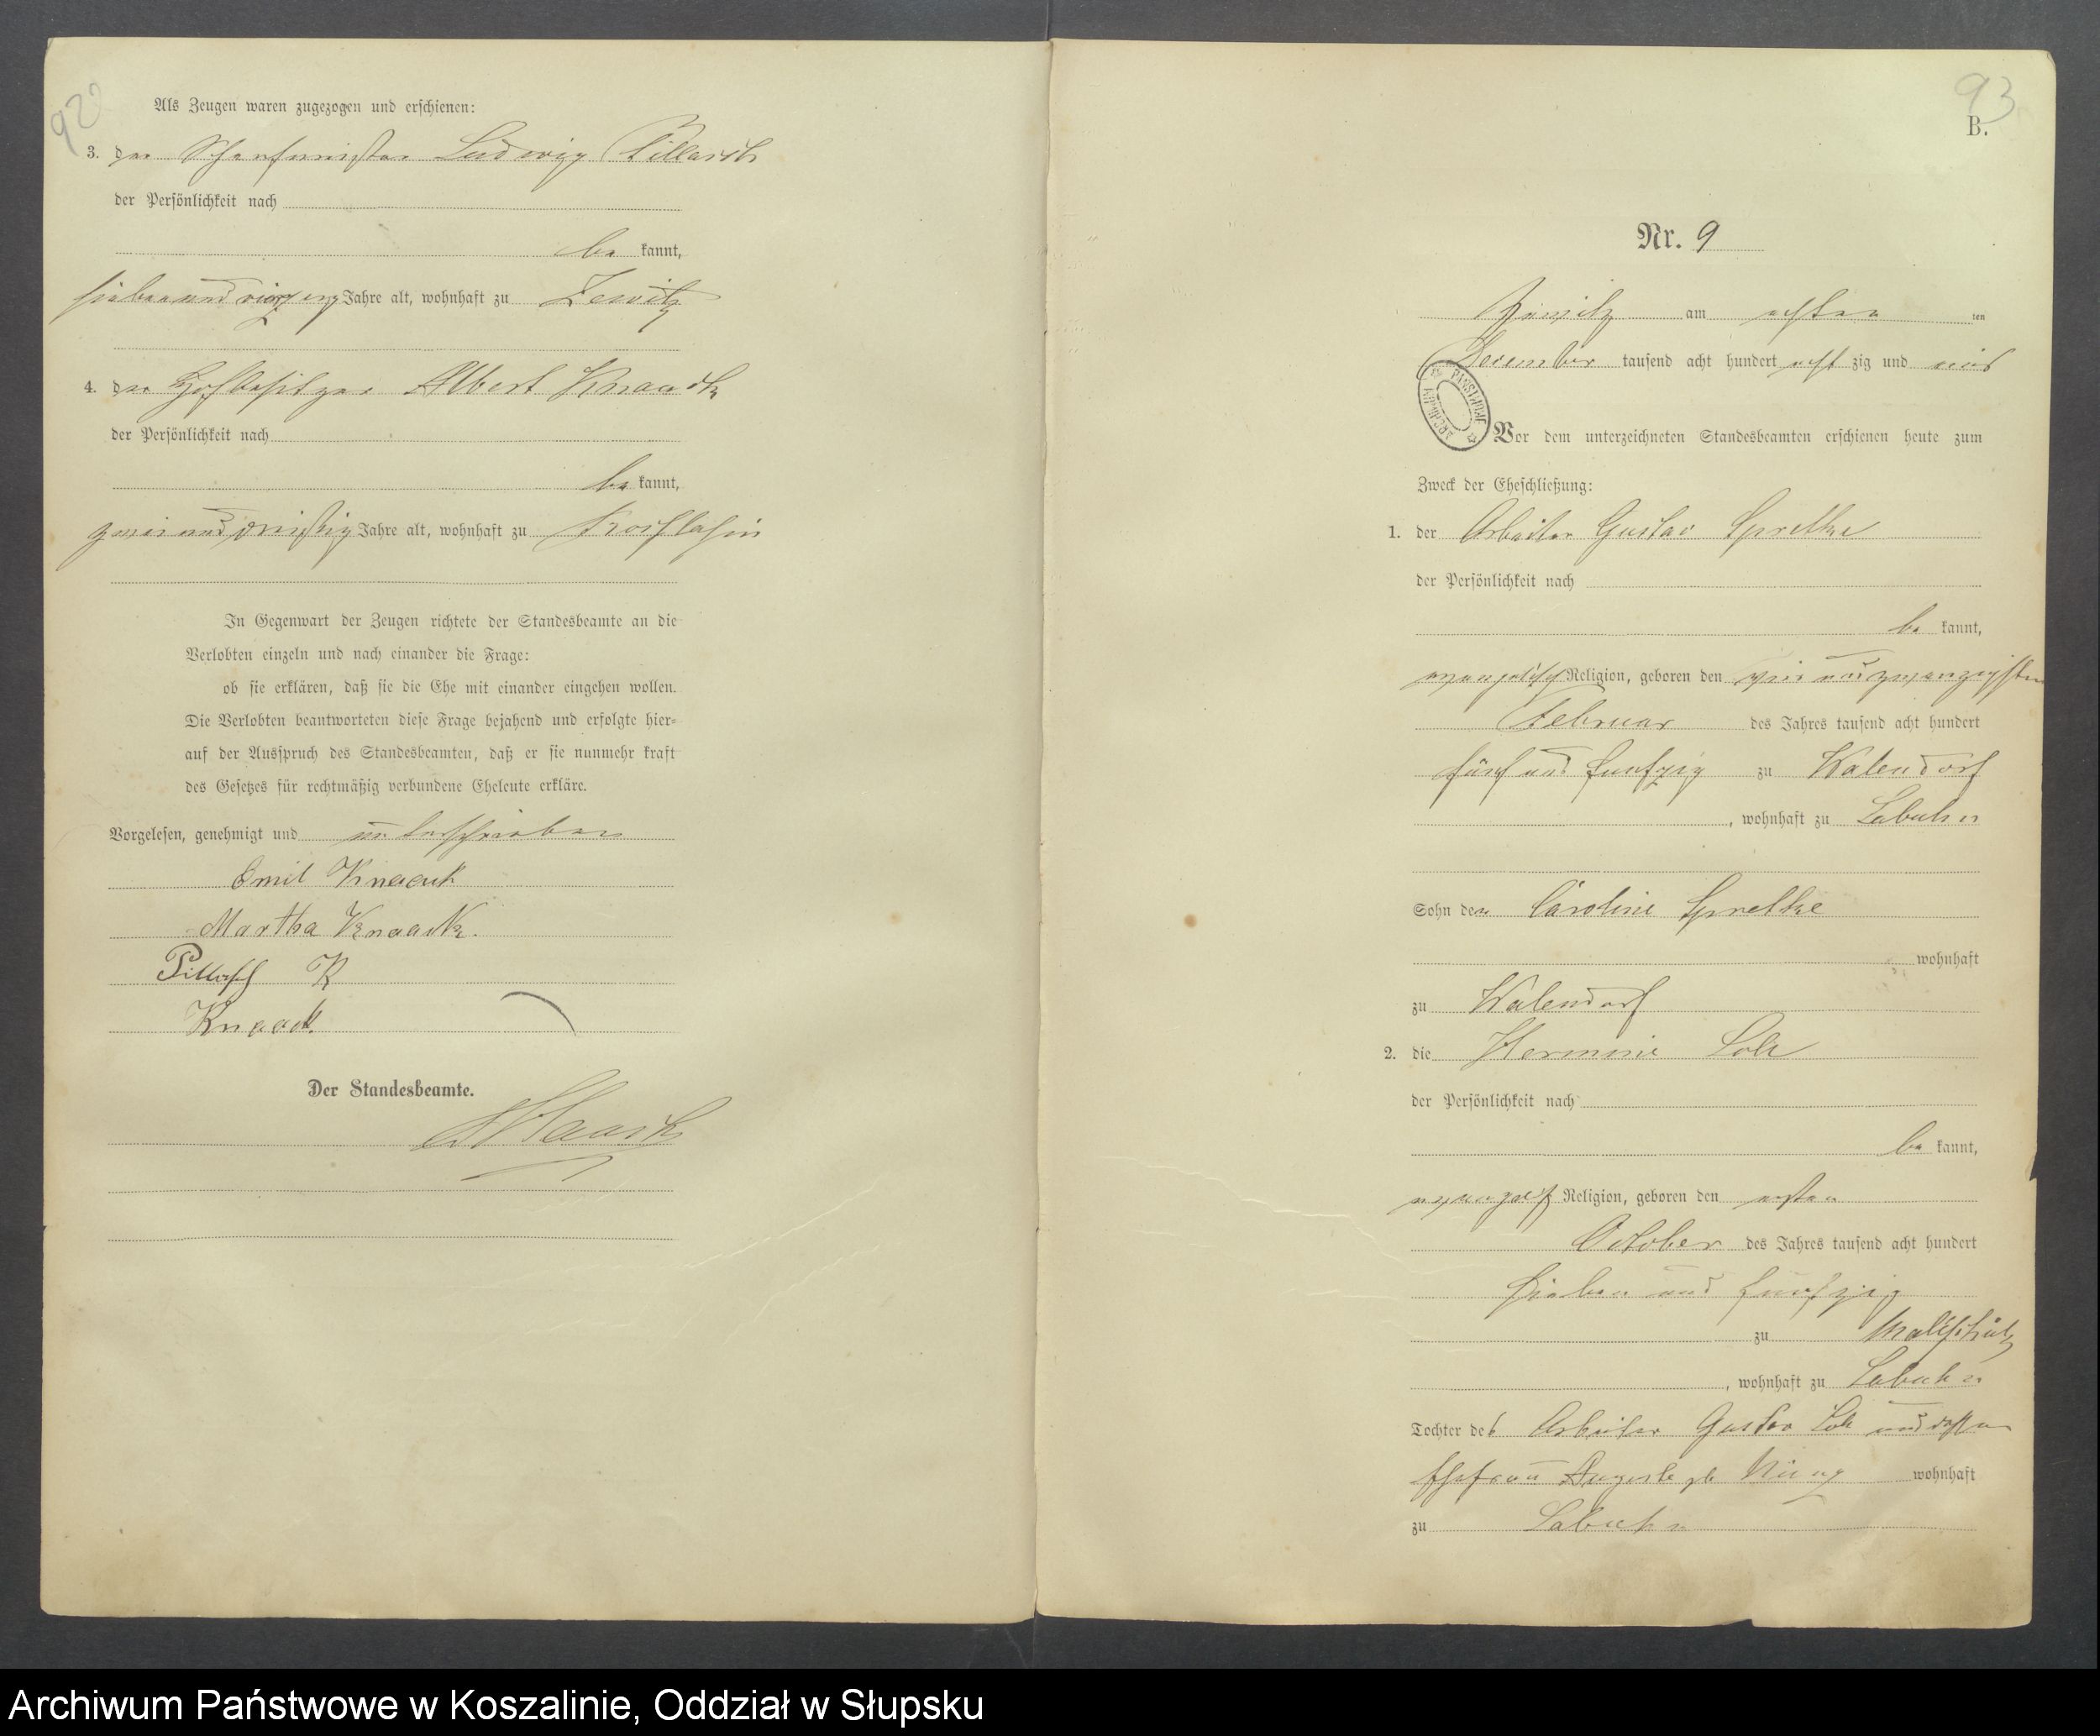 92
Als Zeugen waren zugezogen und erschienen:
3. der Schafmeister Ludwig Pillasch
der Persönlichkeit nach
be kannt,
siebenundvierzig Jahre alt, wohnhaft zu Zewitz
4. der Hofbesitzer Albert Knaack
der Persönlichkeit nach
be kannt,
zweiunddreißig Jahre alt, wohnhaft zu
In Gegenwart der Zeugen richtete der Standesbeamte an die
Verlobten einzeln und nach einander die Frage:
ob sie erklären, daß sie die Ehe mit einander eingehen wollen.
Die Verlobten beantworteten diese Frage bejahend und erfolgte hier-
auf der Ausspruch des Standesbeamten, daß er sie nunmehr kraft
des Gesetzes für rechtmäßig verbundene Eheleute erkläre.
Vorgelesen, genehmigt und unterschrieben
Emil Knaack
Martha Knaack.
Pillasch
Knaack.
Der Standesbeamte.
93
B.
Nr. 9
Zewitz am achten ten
December tausend acht hundert acht zig und
Vor dem unterzeichneten Standesbeamten erschienen heute zum
Zweck der Eheschließung:
1. der Arbeiter Gustav Spretke
der Persönlichkeit nach
be kannt,
evangelisch Religion, geboren den zwanzigsten
Februar des Jahres tausend acht hundert
fünf und fünfzig zu
wohnhaft zu Labuhn
Sohn der Caroline Spretke
wohnhaft
zu
2. die Hermine
der Persönlichkeit nach
be kannt,
evangelisch Religion, geboren den ersten
October des Jahres tausend acht hundert
sieben und fünfzig
zu Malschütz
, wohnhaft zu Labuhn
Tochter des Arbeiter Gustav und dessen
Ehefrau Auguste geb wohnhaft
zu Labuhn
ARCHIWUM PAŃSTWOWE
Archiwum Państwowe w Koszalinie, Oddział w Słupsku